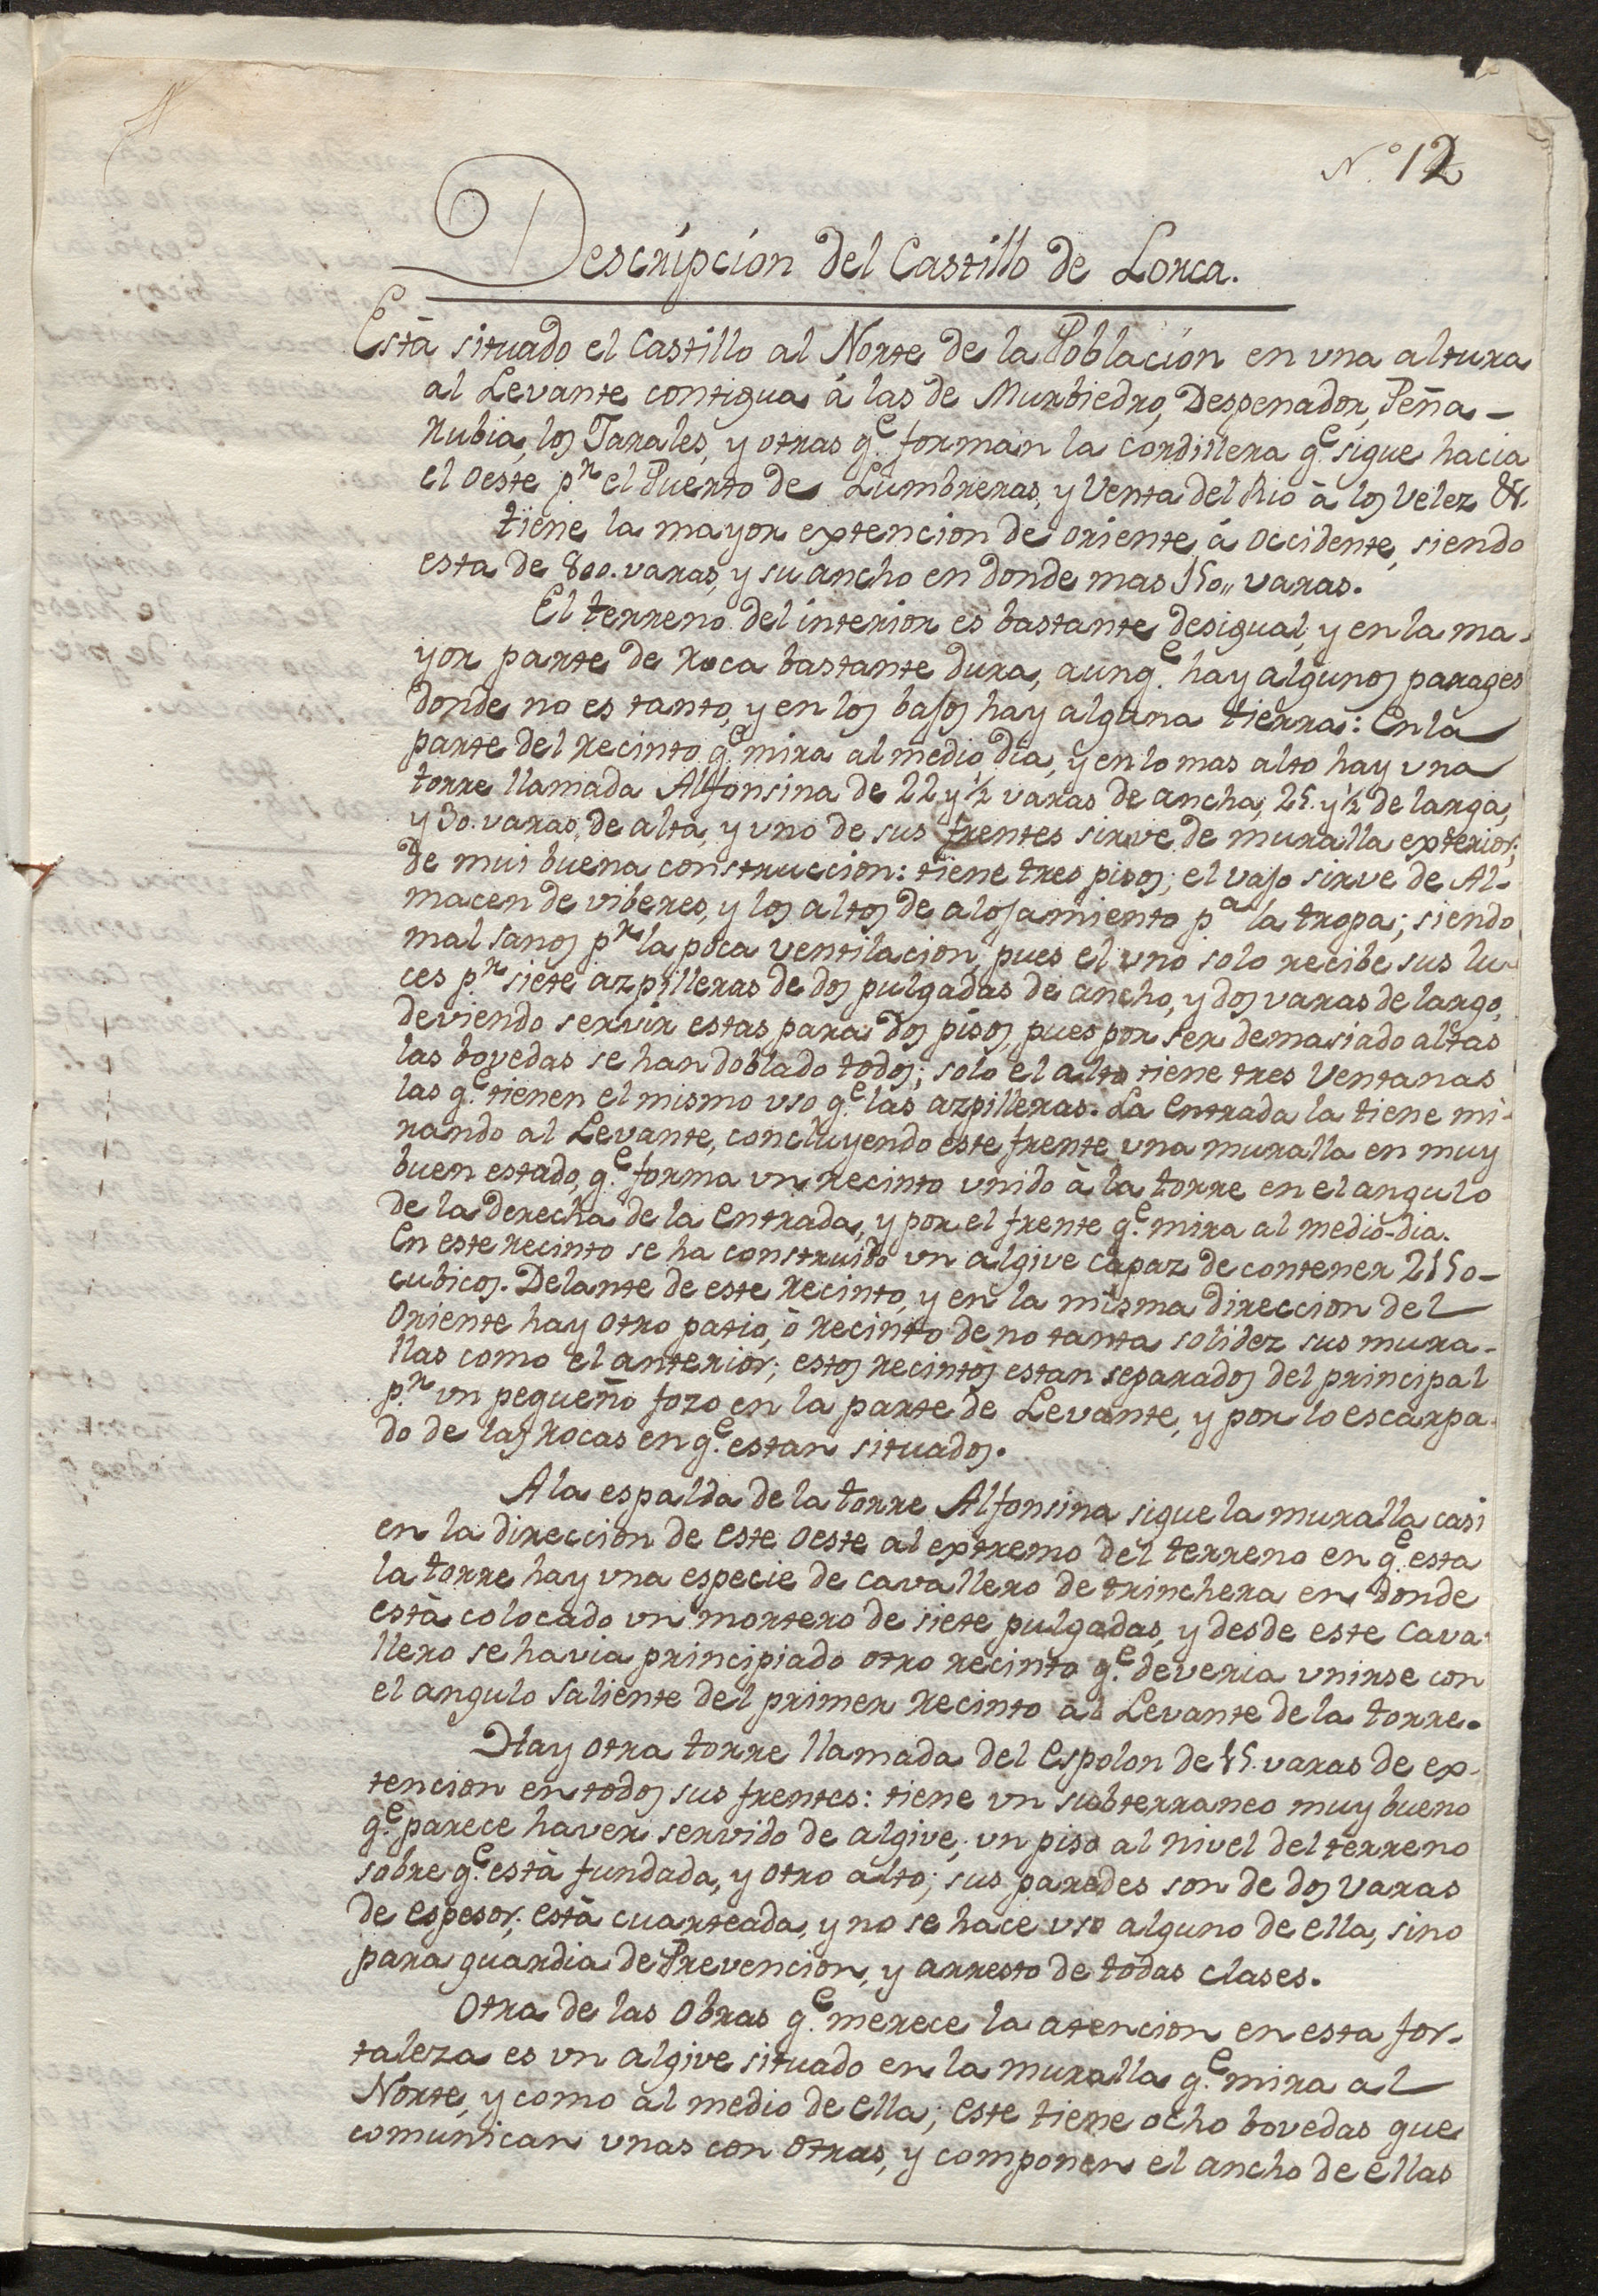 N.º 12
Descripcion del Castillo de Lorca.
Està situado el Castillo al Norte de la Poblacion en una altura
al Levante contigua á las de Murbiedro, Despenador, Peña-
Rubia, los Tarales, y otras q.e forman la cordillera q.e sigue hacia
el Oeste p.r el Puerto de Lumbreras, y Venta del Rio à los Velez &.
tiene la mayor extencion de oriente á occidente, siendo
esta de 800. varas, y su ancho en donde mas 150,, varas.
El terreno del interior es bastante desigual, y en la ma-
yor parte de roca bastante dura, aunq.e hay algunos parages
donde no es tanto, y en los bajos hay alguna tierra: En la
parte del recinto q.e mira al medio dia, y en lo mas alto hay una
torre llamada Alfonsina de 22 y ½ varas de ancha, 25. y ½ de larga,
y 30. varas, de alta, y uno de sus frentes sirve de muralla exterior;
de mui buena construccion: tiene tres pisos; el vajo sirve de Al-
macen de viberes, y los altos de alojamiento p.a la tropa; siendo
mal sanos p.r la poca ventilacion pues el uno solo recibe sus lu-
ces p.r siete azpilleras de dos pulgadas de ancho, y dos varas de largo,
deviendo servir estas para dos pisos, pues por ser demasiado altas
las bovedas se han doblado todos; solo el alto tiene tres Ventanas
las q.e tienen el mismo uso q.e las azpilleras. La entrada la tiene mi-
rando al Levante, concluyendo este frente una muralla en muy
buen estado, q.e forma un recinto unido à la torre en el angulo
de la derecha de la entrada, y por el frente q.e mira al medio-dia.
En este recinto se ha construido un algive capaz de contener 2150-
cubicos. Delante de este Recinto, y en la misma direccion del
Oriente hay otro patio, ò recinto de no tanta solidez sus mura-
llas como el anterior; estos recintos estan separados del principal
p.r un pequeño fozo en la parte de Levante, y por lo escarpa-
do de las rocas en q.e estan situados.
A la espalda de la torre Alfonsina sigue la muralla casi
en la direccion de este oeste al extremo del terreno en q.e esta
la torre hay una especie de cavallero de trinchera en donde
està colocado un mortero de siete pulgadas, y desde este Cava-
llero se havia principiado otro recinto q.e deveria unirse con
el angulo saliente del primer recinto al Levante de la torre.
Hay otra torre llamada del Espolon de 15. varas de ex-
tencion en todos sus frentes: tiene un subterraneo muy bueno
q.e parece haver servido de algive; un piso al nivel del terreno
sobre q.e està fundada, y otro alto; sus paredes son de dos varas
de espesor; està cuarteada, y no se hace uso alguno de ella, sino
para guardia de Prevencion, y arresto de todas clases.
Otra de las Obras q.e merece la atencion en esta for-
taleza es un algive situado en la muralla q.e mira al
Norte, y como al medio de ella; este tiene ocho bovedas que
comunican unas con otras, y componen el ancho de ellas